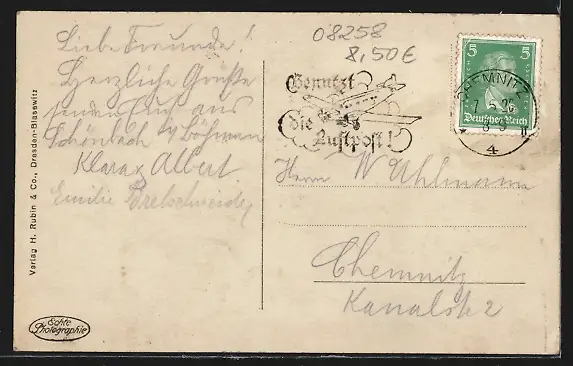 Liebe Freunde!
Herzliche Grüße
senden Euch aus
Schönbach b/ Böhmen
Klara Albert
Emilie Bretschneider
08258
8,50 €
Benutzt
die
Luftpost!
5 5
Deutsches Reich
CHEMNITZ
4
Herrn W Uhlmann
Chemnitz
Kanalstr 2
Verlag H. Rubin & Co., Dresden-Blasewitz
Echte
Photographie